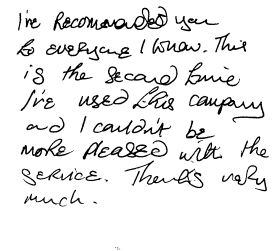 I've Recommended you
to everyone I know. This
is the second time
I've used this company
and I couldn't be
more pleased with the
service. Thanks very
much.